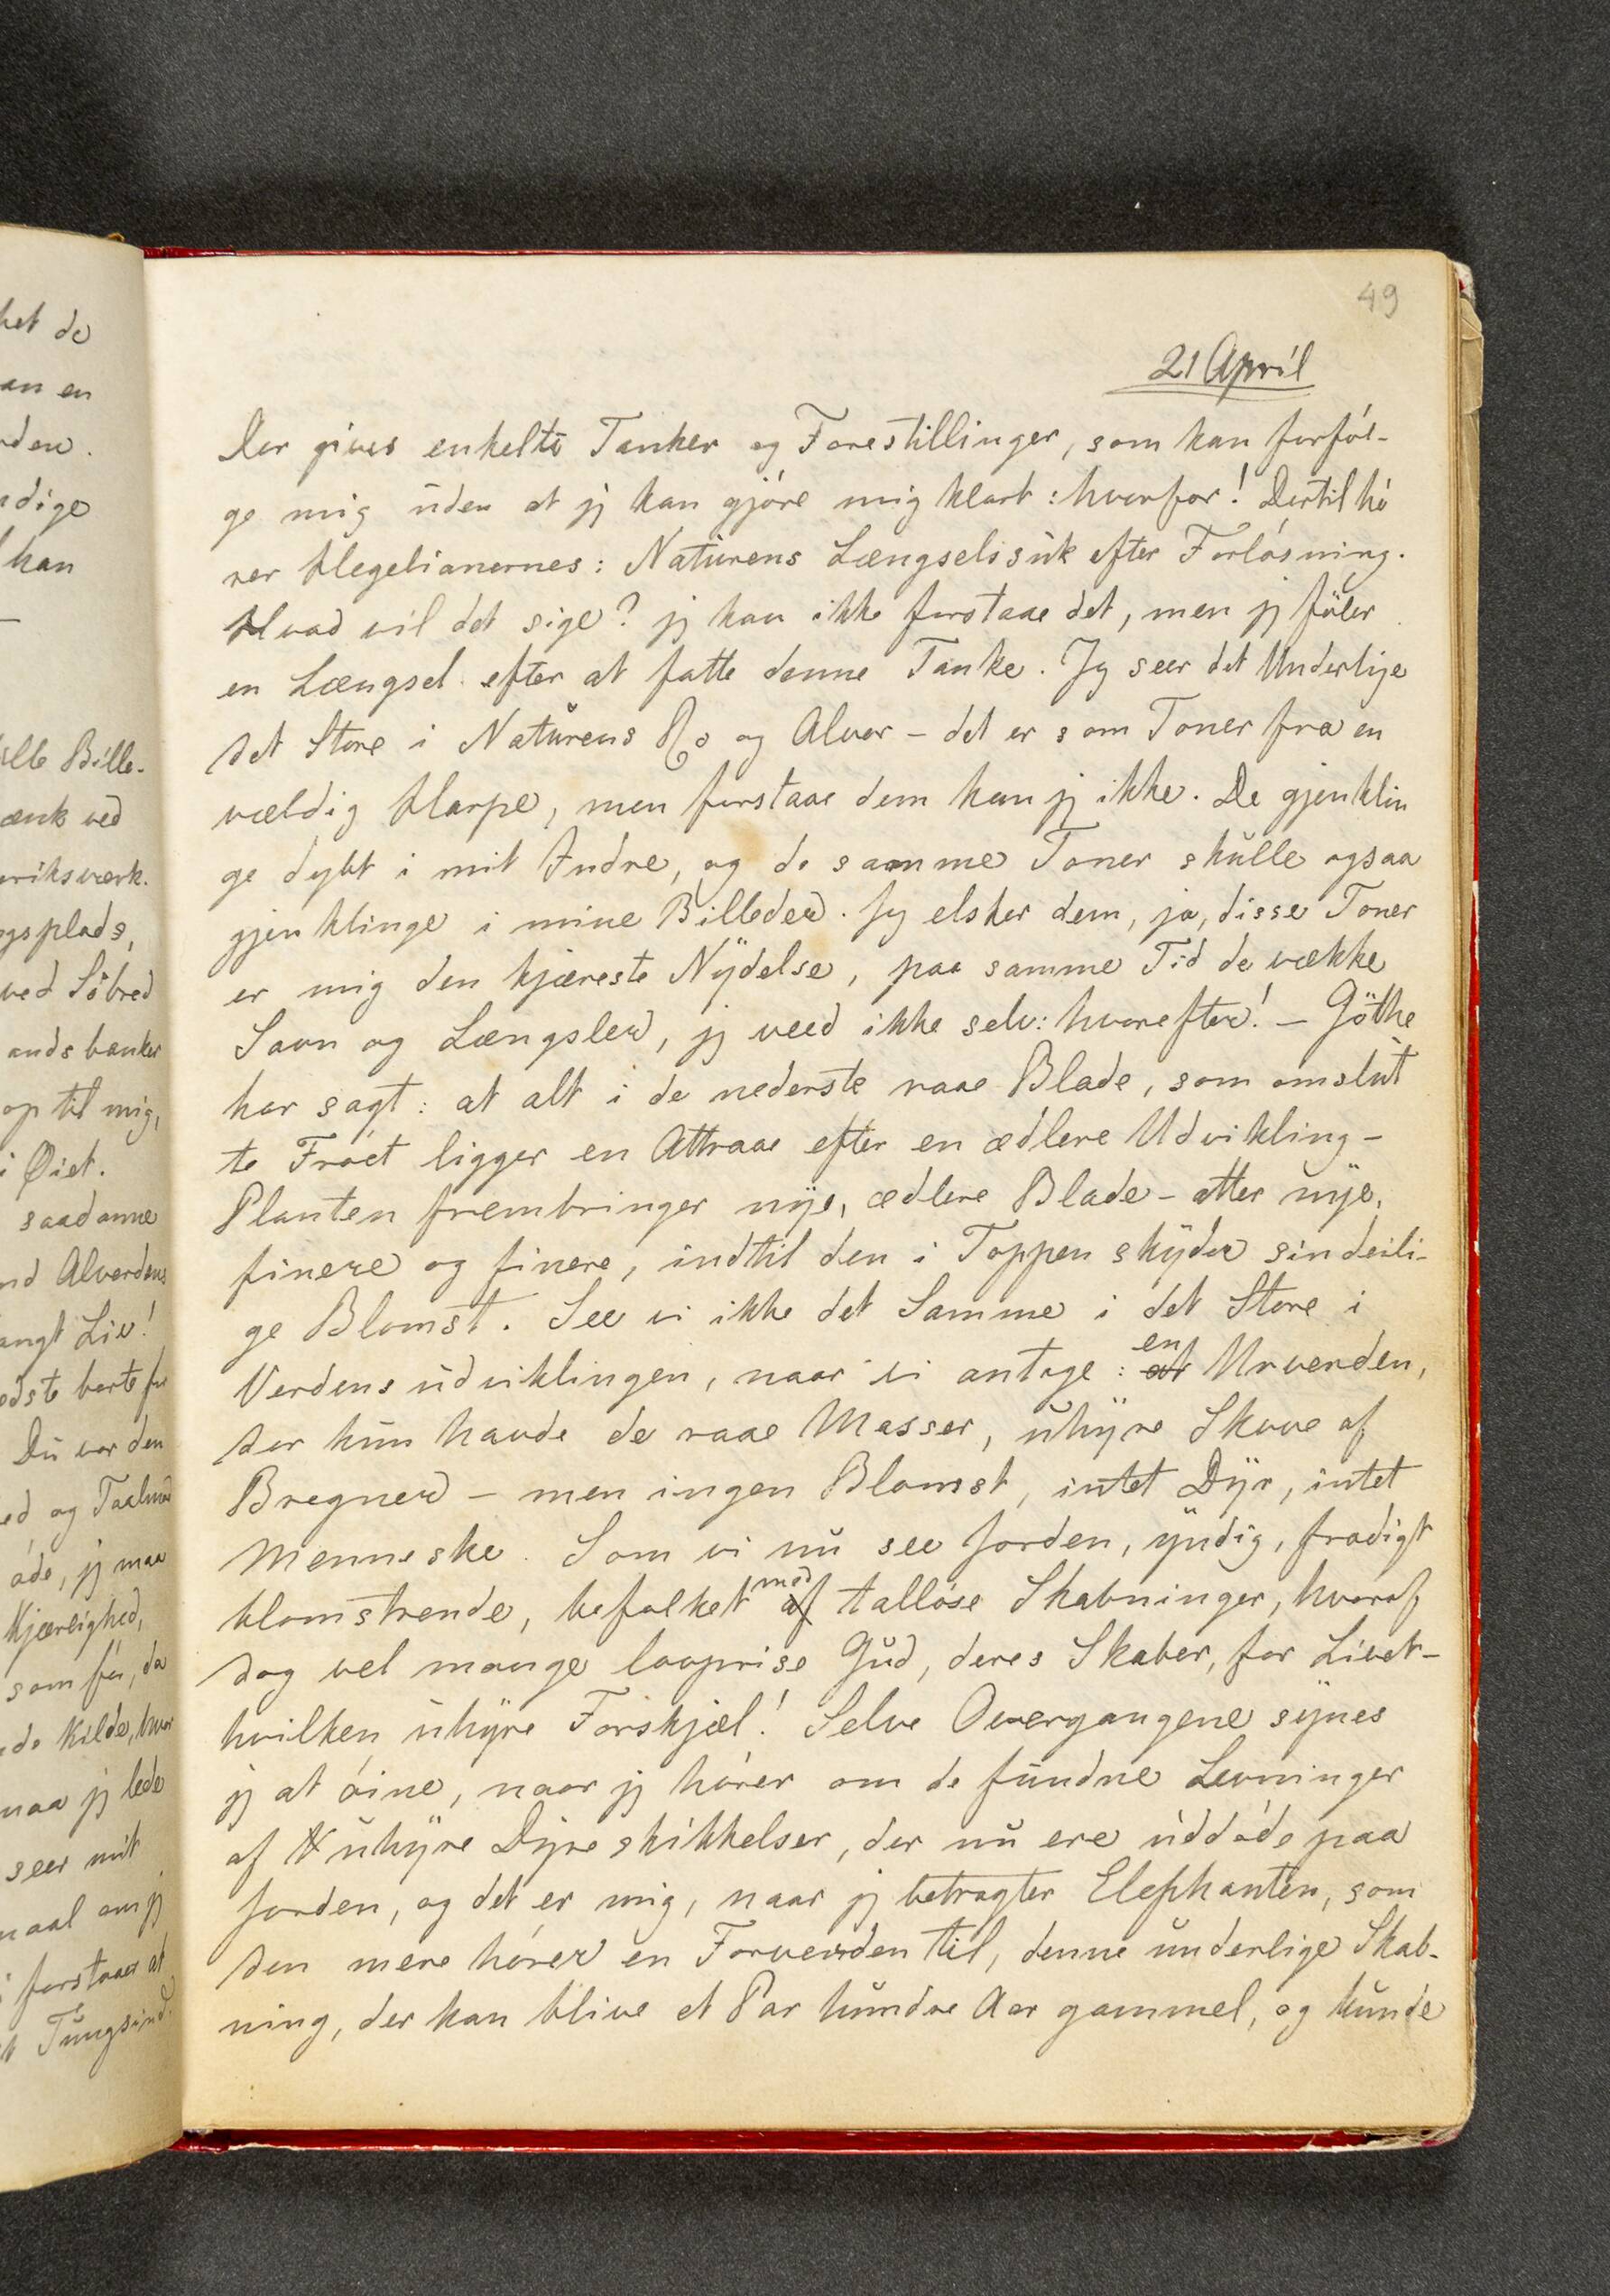 49
21 April
Der gives enkelte Tanker og Forestillinger, som kan forføl-
ge mig uden at jeg kan gjøre mig klart: hvorfor! Dertil hø
rer Hegelianernes: Naturens Længselssuk efter Forløsning.
Hvad vil det sige? jeg kan ikke forstaae det, men jeg føler
en Længsel efter at fatte denne Tanke. Jeg seer det Underlige
det Store i Naturens Ro og Alvor – det er som Toner fra en
vældig Harpe, men forstaae dem kan jeg ikke. De gjenklin
ge dybt i mit Indre, og de samme Toner skulle ogsaa
gjenklinge i mine Billeder. Jeg elsker dem, ja, disse Toner
er mig den kjæreste Nydelse, paa samme Tid de vække
Savn og Længsler, jeg veed ikke selv: hvorefter! – Göthe
har sagt: at alt i de nederste raae Blade, som omslut
te Frøet ligger en Attraae efter en ædlere Udvikling –
Planten frembringer nye, ædlere Blade – atter nye,
finere og finere, indtil den i Toppen skyder sin deili-
ge Blomst. See vi ikke det Samme i det Store i
Verdensudviklingen, naar vi antage: en Urverden,
der kun havde de raae Masser, uhyre Skove af
Bregner – men ingen Blomst, intet Dyr, intet
Menneske. Som vi nu see Jorden, yndig, frodigt
blomstrende, befolket med talløse Skabninger, hvoraf
dog vel mange lovprise Gud, deres Skaber, for Livet –
hvilken uhyre Forskjæl! Selve Overgangene synes
jeg at øine, naar jeg hører om de fundne Levninger
af uhyre Dyreskikkelser, der nu ere uddøde paa
Jorden, og det er mig, naar jeg betragter Elephanten, som
den mere hører en Forverden til, denne underlige Skab-
ning, der kan blive et Par hundre Aar gammel, og kunde
het de
an en
kan
ved Søbred
op til mig,
i Øiet.
saadanne
angt Liv!
Du var den
jeg maa
Kjærlighed,
Kilde, hvor
maa jeg lede
seer mit
om jeg
forstaaer at
Tungsind.